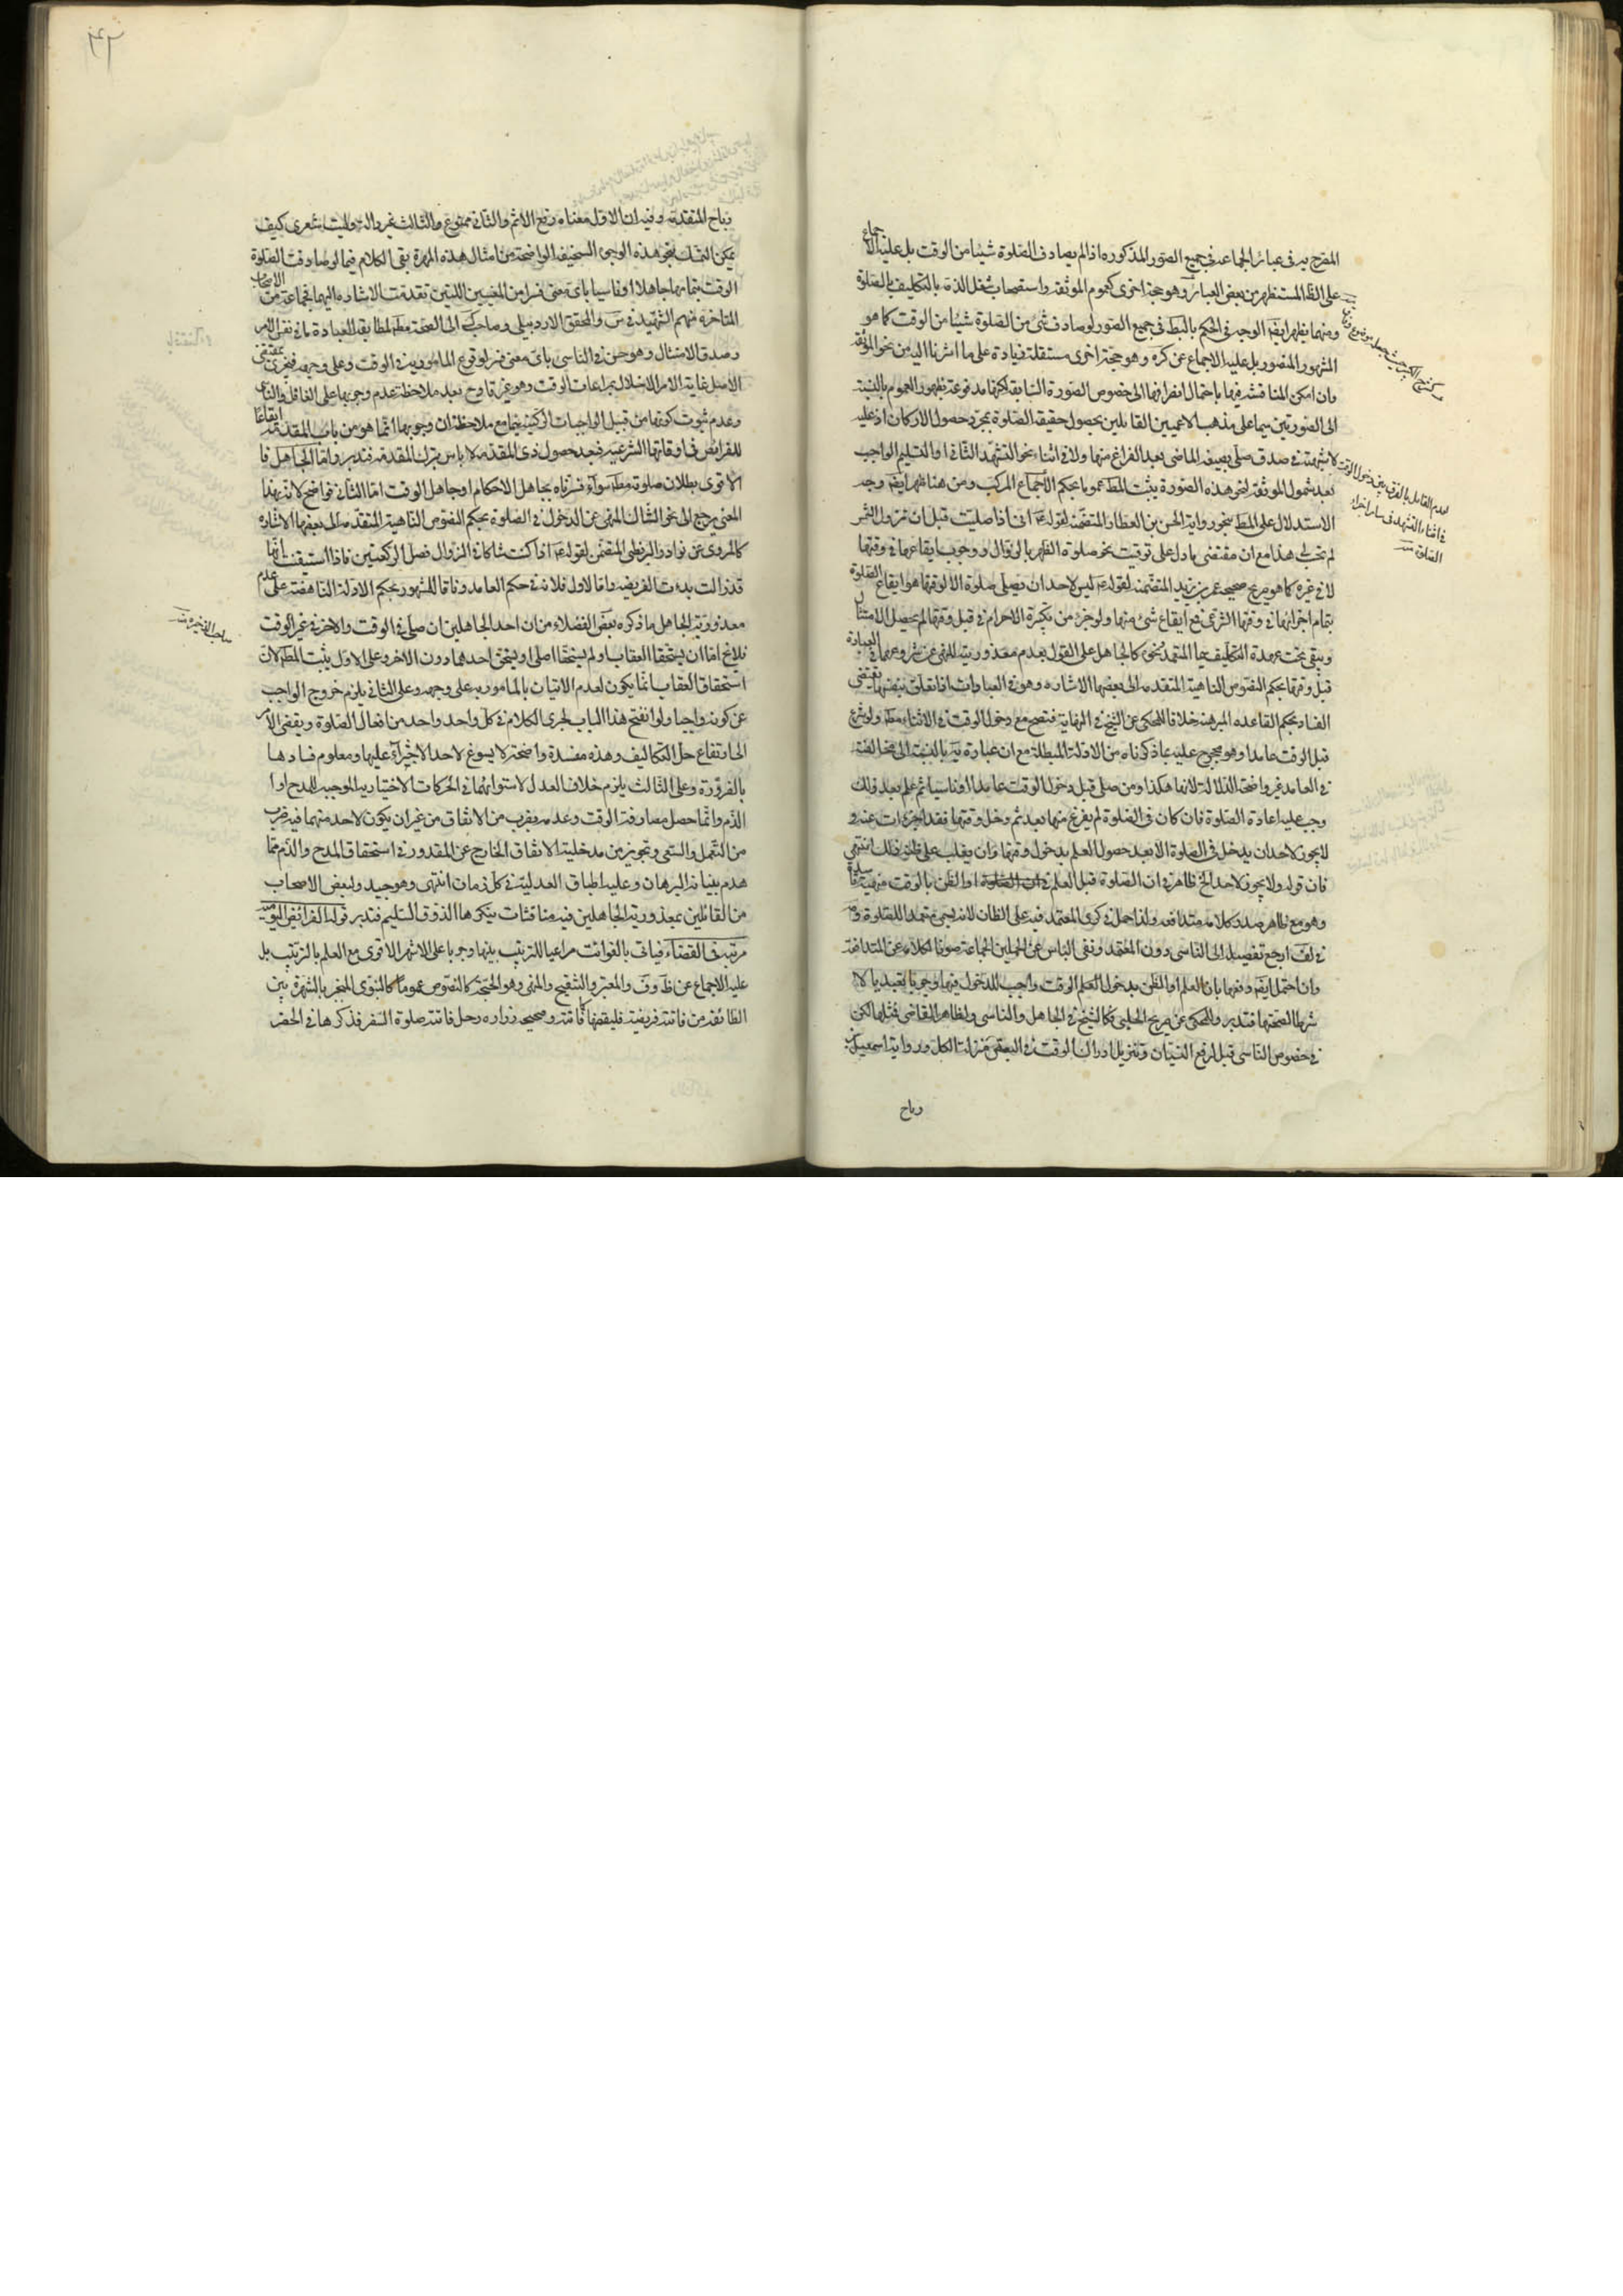 المصرح به في عبائر الجماعة في جميع الصور المذكوره اذا لم يصادف الصلوة شيئا من الوقت بل عليه الاجماع
على الظ المستظهر من بعض العبائر وهو حجة اخرى كعموم الموثقه واستصحاب شغل الذمة بالتكليف بالصلوة
ومنها يظهر ايضا الوجه في الحكم بالبط في جميع الصور لو صادف شئ من الصلوة شيئا من الوقت كما هو
المشهور المنصور بل عليه الاجماع عن كره وهو حجة اخرى مستقلة زيادة على ما اشرنا اليه من نحو الموثقه
وان امكن المناقشة فيها باحتمال انصرافها الى خصوص الصورة السابقه لكنها مدفوعة بظهور العموم بالنسبة
الى الصورتين سيما على مذهب الاعميين القائلين بحصول حقيقة الصلوة بمجرد حصول الاركان اذ عليه
لا شبهة في صدق صلى بصيغه الماضي بعد الفراغ منها ولو في اثناء نحو التشهد الثاني او التسليم الواجب
بعد شمول الموثقه لنحو هذه الصورة يثبت المط عموما بحكم الاجماع المركب ومن هنا ظهر ايضا وجه
الاستدلال على المط بنحو رواية الحسن بن العطار المتضمنة لقوله ع اني اذا صليت قبل ان تزول الشمس
لم تحتسب لي هذا مع ان مقتضى ما دل على توقيت نحو صلوة الظهر بالزوال ووجوب ايقاعها في وقتها
لا في غيره كما هو صريح صحيحة عمر بن يزيد المتضمنة لقوله ع ليس لاحد ان يصلي صلوة الا لوقتها هو ايقاع الصلوة
بتمام اجزائها في وقتها الشرعي فمع ايقاع شئ منها ولو جزء من تكبيرة الاحرام في قبل وقتها لم يحصل الامتثال
ويبقى تحت عهدة التكليف
قبل وقتها بحكم النصوص الناهية المتقدمه الى بعضها الاشاره وهو في العبادات اذا تعلق بنفسها يقتضي
الفساد بحكم القاعده المبرهنة خلافا للمحكي عن الشيخ في النهاية فتصح مع دخول الوقت في الاثناء مط ولو شرع
قبل الوقت عامدا وهو محجوج عليه بما ذكرناه من الادلة المبطلة مع ان عبارة يه بالنسبة الى مخالفته
في العامد غير واضحة الدلالة لانها هكذا ومن صلى قبل دخول الوقت عامدا او ناسيا ثم علم بعد ذلك
وجب عليه اعادة الصلوة فان كان في الصلوة لم يفرغ منها بعد ثم دخل وقتها فقد اجزات عنه و
لا يجوز لاحد ان يدخل في الصلوة الا بعد حصول العلم بدخول وقتها وان يغلب على ظنه ذلك انتهى
فان قوله ولا يجوز لاحد الخ ظاهر في ان الصلوة قبل العلم او الظن بالوقت منهية
وهو مع ظاهر صدر كلامه متدافعه ولذا حمل في كرى المعتمد فيه على الظان لانه يسمى متعمدا للصلوة و
في لف ارجع تفصيله الى الناسي دون المعتمد ونفى الباس عن الحملين الجماعة صونا لكلامه عن المتدافعة
وان احتمل ايضا دفعها بان العلم او الظن بدخول الوقت واجب للدخول فيها وجوبا تعبديا لا
شرطا لصحتها فتدبر وللمحكي عن صريح الحلبي فكالشيخ في الجاهل والناسي ولظاهر القاضي فمثلها لكن
في خصوص الناسي قبل لرفع النسيان وتنزيل ادراك الوقت في البعض منزلة الكل ورواية اسمعيل بن
رباح
لعدم القائل بالفرق بين دخول الوقت
في اثناء التشهد في سائر اجزاء
الصلوة منه
٤٢
رباح المتقدمة وفيه ان الاول معناه رفع الاثم والثاني ممنوع والثالث غير دالة وليت شعري كيف
يمكن التمسك بنحو هذه الوجوه السخيفه الواضحة من امثال هذه المهرة بقي الكلام فيما لو صادفت الصلوة
الوقت بتمامها جاهلا او ناسيا باي معنى فسرا من المعنيين اللتين تقدمت الاشاره اليهما فجماعة من الاصحاب
المتاخرة منهم الشهيد في س والمحقق الاردبيلي وصاحب ك الى الصحة مط لمطابقة العبادة ما في نفس الامر
وصدق الامتثال وهو حسن في الناسي باي معنى فسر لوقوع المامور به في الوقت وعلى وجهه فيجزي بمقتضى
الاصل غاية الامر الاخلال بمراعات الوقت وهو غير قادح بعد ملاحظة عدم وجوبها على الغافل والناسي
وعدم ثبوت كونها من قبيل الواجبات الركنية سيما مع ملاحظة ان وجوبها انما هو من باب المقدمة ايقاعا
للفرائض في اوقاتها الشرعيه فبعد حصول ذي المقدمة لا باس بترك المقدمة فتدبر واما الجاهل فا
لاقوى بطلان صلوته مط سواء فسرناه بجاهل الاحكام او جاهل الوقت اما الثاني فواضح لانه بهذا
المعنى يرجع الى نحو الشاك المنهي عن الدخول في الصلوة بحكم النصوص الناهية المتقدمه الى بعضها الاشاره
كالمروي عن نوادر البزنطي المتضمن لقوله ع اذا كنت شاكا في الزوال فصل الركعتين فاذا استيقنت انها
قد زالت بدءت الفريضه واما الاول فلانه في حكم العامد وفاقا للمشهور بحكم الادلة الناهضة على عدم
معذورية الجاهل ما ذكره بعض الفضلاء من ان احد الجاهلين ان صلى في الوقت والاخر في غير الوقت
فلا يخ اما ان يستحقا العقاب او لم يستحقا اصلا او يستحق احدهما دون الاخر وعلى الاول يثبت المط لان
استحقاق العقاب انما يكون لعدم الاتيان بالمامور به على وجهه وعلى الثاني يلزم خروج الواجب
عن كونه واجبا ولو انفتح هذا الباب لجرى الكلام في كل واحد واحد من افعال الصلوة ويفضي الامر
الى ارتفاع جل التكاليف وهذه مفسدة واضحة لا يسوغ لاحد الاجتراء عليها ومعلوم فسادها
بالضرورة وعلى الثالث يلزم خلاف العدل لاستوائهما في الحركات الاختيارية الموجبه للمدح او ا
لذم وانما حصل مصادفة الوقت وعدمه بضرب من الاتفاق من غير ان يكون لاحد منهما فيه ضرب
من التعمل والسعي وتجويز من مدخلية الاتفاق الخارج عن المقدور في استحقاق المدح والذم مما
هدم بنيانه البرهان وعليه اطباق العدلية في كل زمان انتهى وهو جيد ولبعض الاصحاب
من القائلين بمعذورية الجاهلين فيه مناقشات ينكرها الذوق السليم فتدبر قوله الفرائض اليومية
مرتبة في القضاء فياتي بالفوائت مراعيا للترتيب بينها وجوبا على الاشهر الاقوى مع العلم بالترتيب بل
عليه الاجماع عن ظ وف والمعتبر والتنقيح والمنهى وهو الحجة كالنصوص عموما كالنبوي المنجبر بالشهرة بين
الطائفه من فاتته فريضة فليقضها كما فاتته وصحيحه زراره رجل فاتته صلوة السفر فذكرها في الحضر
صاحب الذخيرة منه